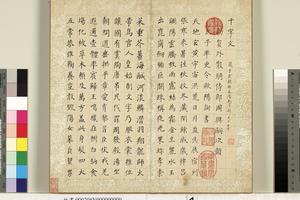 千字文
員外散騎侍郎周興嗣次韻
天地玄黃宇宙洪荒日月盈昃辰宿列
張寒來暑往秋收冬藏閏餘成歲律呂
調陽雲騰致雨露結為霜金生麗水玉
出崑岡劍號巨闕珠稱夜光果珍李柰
菜重芥薑海鹹河淡鱗潛羽翔龍師火
帝鳥官人皇始制文字乃服衣裳推位
讓國有虞陶唐弔民伐罪周發殷湯坐
朝問道垂拱平章愛育黎首臣伏戎羌
遐邇壹體率賓歸王鳴鳳在樹白駒食
場化被草木賴及萬方蓋此身髮四大
五常恭惟鞠養豈敢毀傷女慕貞潔男